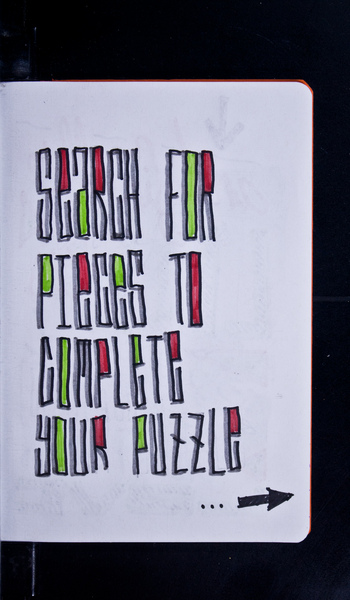 SEARCH FOR
PIECES TO
COMPLETE
YOUR PUZZLE
...